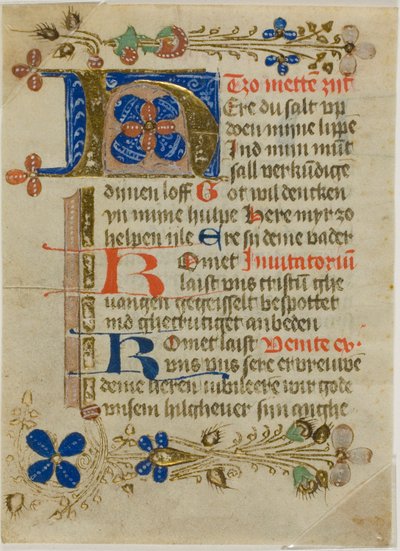 Tzo mettē zijt
HEre du salt vp
doen mijne lippe
Ind mijn mūt
sall verkūdige
dijnen loff Got wil dencken
yn mijne hulpe Here myr zo
helpen ijle Ere sij deme vader
Komet Inuitatoriū
laist vns cristum ghe
uangen gegeisselt bespottet
ind ghecrutziget anbeden
Komet laist Venite ex.
vns vns sere ervreuwe
deme heren iubileere wir gode
vnsem hilgheuer sijn anghe